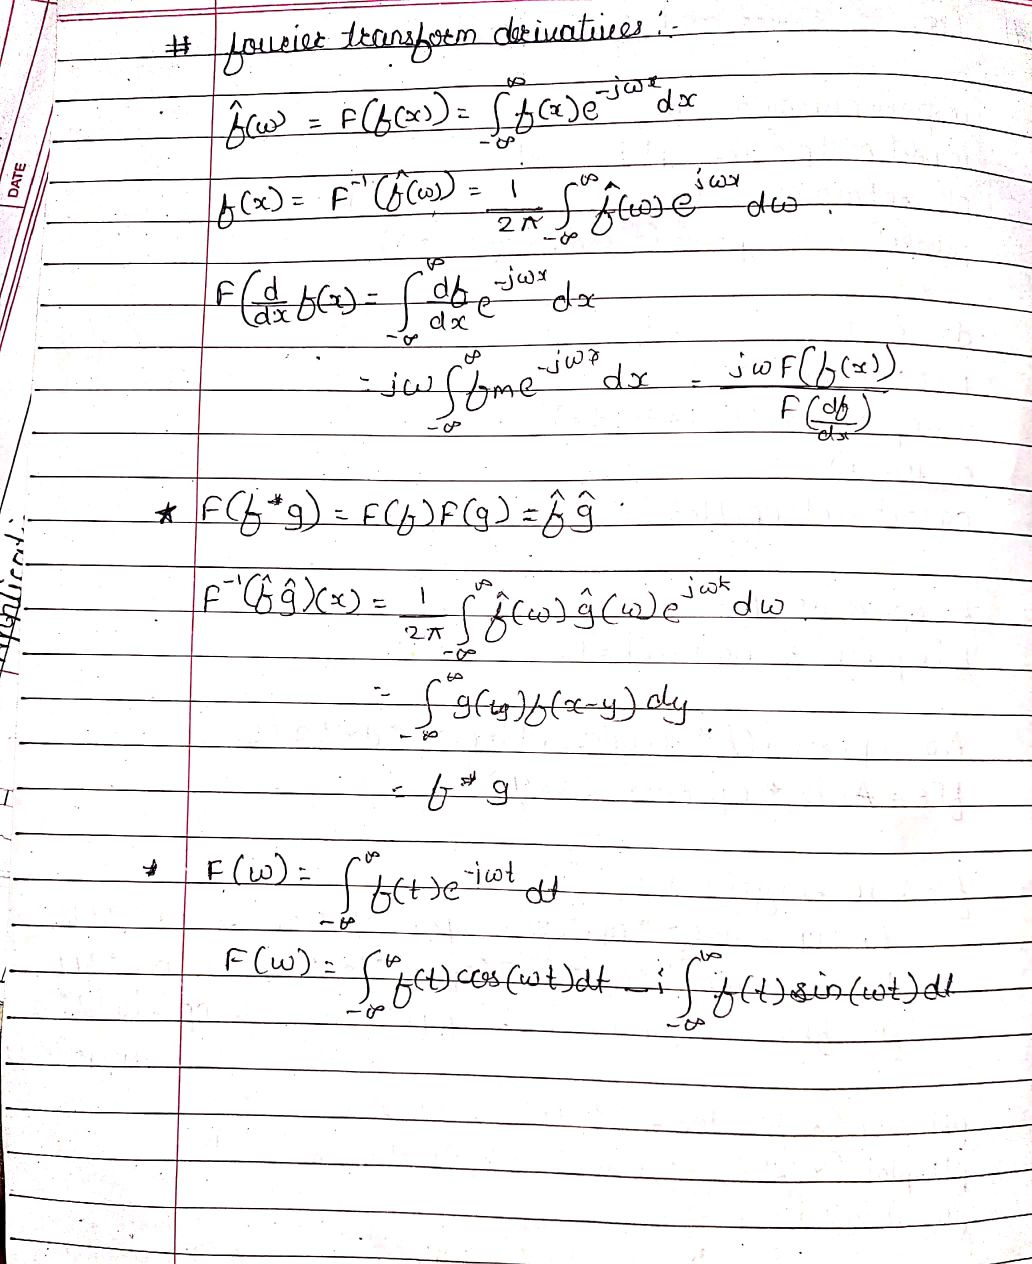 # fourier transform derivatives :-
f̂(ω) = F(f(x)) = ∫_{-∞}^{∞} f(x)e^{-jωx} dx
DATE
f(x) = F^{-1}(f̂(ω)) = 1/2π ∫_{-∞}^{∞} f̂(ω) e^{jωx} dω .
F(d/dx f(x) = ∫_{-∞}^{∞} df/dx e^{-jωx} dx
= jω ∫_{-∞}^{∞} fme^{-jωx} dx = jωF(f(x)) / F(df/dx)
* F(f*g) = F(f)F(g) = f̂ĝ .
F^{-1}(f̂ĝ)(x) = 1/2π ∫_{-∞}^{∞} f̂(ω)ĝ(ω)e^{jωt} dω
= ∫_{-∞}^{∞} g(y)f(x-y) dy .
= f*g
* F(ω) = ∫_{-∞}^{∞} f(t)e^{-iωt} dt
F(ω) = ∫_{-∞}^{∞} f(t)cos(ωt)dt - i ∫_{-∞}^{∞} f(t)sin(ωt)dt